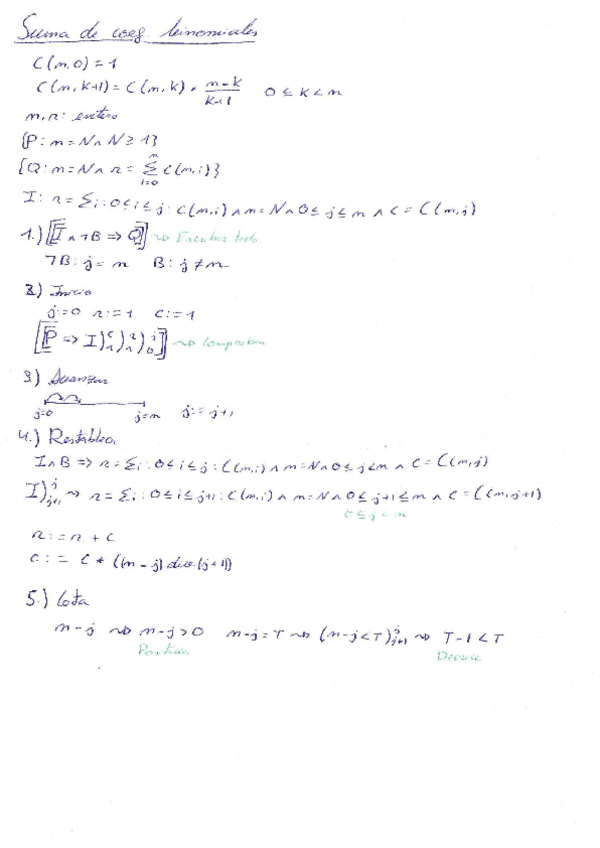 Suma de coef. binomiales
C(n,0) = 1
C(n,k+1) = C(n,k) * (n-k)/(k+1)   0 ≤ k < n
n, r: entero
{P: n = N ∧ N ≥ 1}
{Q: n = N ∧ r = Σ_{i=0}^{n} C(n,i)}
I: r = Σi: 0≤i≤j: C(n,i) ∧ n=N ∧ 0≤j≤n ∧ C = C(n,j)
1.) [[I ∧ ¬B ⇒ Q]] ~> Escribir todo
¬B: j = n   B: j ≠ n
2.) Inicio
j:=0   r:=1   c:=1
[[P ⇒ I)^c_1)^r_1)^j_0]] ~> Comprobar
3.) Avanzar
j=0   j=n   j:=j+1
4.) Restablecer
I∧B ⇒ r = Σi: 0≤i≤j: C(n,i) ∧ n=N ∧ 0≤j<n ∧ C = C(n,j)
I)^j_{j+1} ~> r = Σi: 0≤i≤j+1: C(n,i) ∧ n=N ∧ 0≤j+1≤n ∧ C = C(n,j+1)
0≤j<n
r := r + c
c := c * ((n-j) div (j+1))
5.) Cota
n-j ~> n-j>0   n-j=T ~> (n-j<T)^j_{j+1} ~> T-1<T
Positiva   Decrece